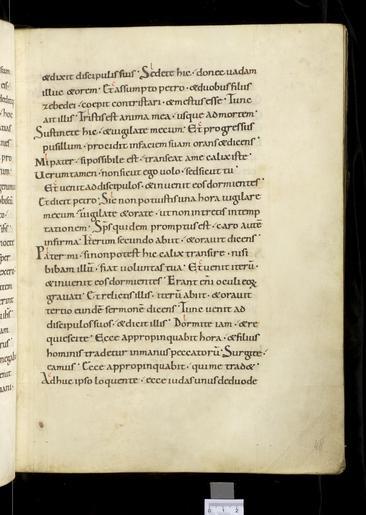 & dixit discipulis suis · Sedete hic · donec uadam
illuc & orem · Et assumpto petro · & duobus filiis
zebedei · coepit contristari · & mestus esse · Tunc
ait illis · Tristis est anima mea · usque ad mortem ·
Sustinete hic · & uigilate mecum · Et progressus
pusillum · procidit in faciem suam orans & dicens ·
Mi pater · si possibile est · transeat a me calix iste ·
Uerumtamen · non sicut ego uolo · sed sicut tu ·
Et uenit ad discipulos · & inuenit eos dormientes ·
Et dicit petro · Sic non potuistis una hora uigilare
mecum · uigilate & orate · ut non intretis in temp
tationem · Sps quidem promptus est · caro autē
infirma · Iterum secundo abiit · & orauit dicens ·
Pater mi · si non potest hic calix transire · nisi
bibam illū · fiat uoluntas tua · Et uenit iterū ·
& inuenit eos dormientes · Erant enī oculi eoꝝ
grauati · Et relictis illis · iterū abiit · & orauit
tertio eundē sermonē dicens · Tunc uenit ad
discipulos suos · & dicit illis · Dormite iam · & re
quiescite · Ecce appropinquabit hora · & filius
hominis tradetur in manus peccatorū · Surgite ·
eamus · Ecce appropinquabit · qui me trad& ·
Adhuc ipso loquente · ecce iudas unus de duode
48